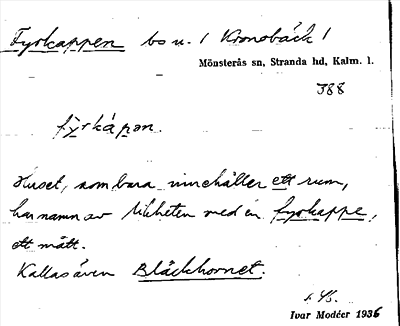 Fyrkappen bo u. / Kronobäck /
Mönsterås sn, Stranda hd, Kalm. l.
388
fy̆rkápən.
Huset, som bara innehåller ett rum,
har namn av likheten med en fyrkappe,
ett mått.
Kallas även Bläckhornet.
Ivar Modéer 1936